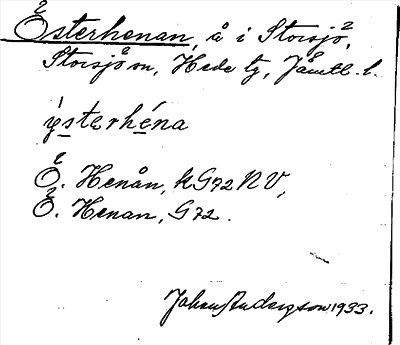 Österhenan, å i Storsjö,
Storsjö sn, Hede tg, Jämtl. l.
ýsterhéna
Ö. Henån, kG72NV,
Ö. Henan, G72.
Johan Anderson 1933.